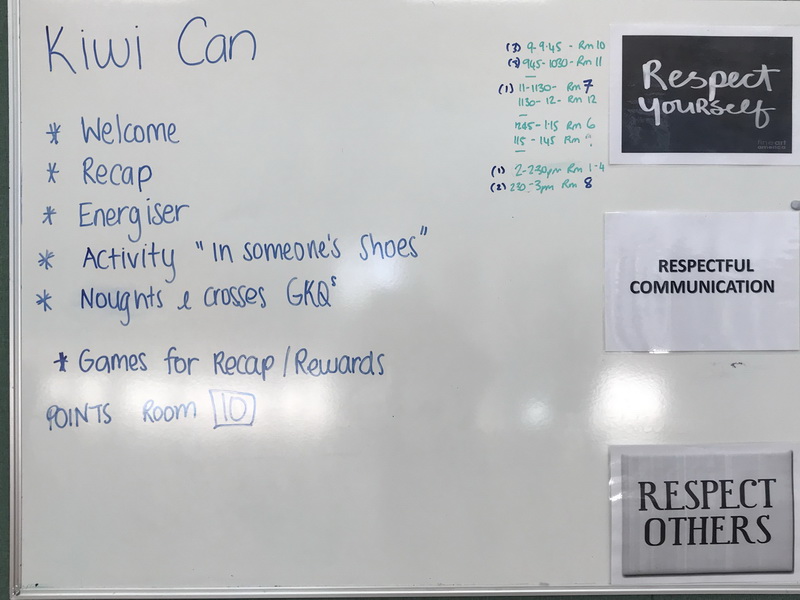 Kiwi Can
* Welcome
* Recap
* Energiser
* Activity "In someone's Shoes"
* Noughts & crosses GKQs
* Games for Recap/Rewards
POINTS Room 10
(3) 9-9.45 - Rm 10
945-1030- Rm 11
(1) 11-1130- Rm 7
1130-12- Rm 12
1245-1.15 Rm 6
115-145 Rm
(1) 2-230pm Rm 1-4
(2) 230-3pm Rm 8
Respect
yourself
RESPECTFUL
COMMUNICATION
RESPECT
OTHERS